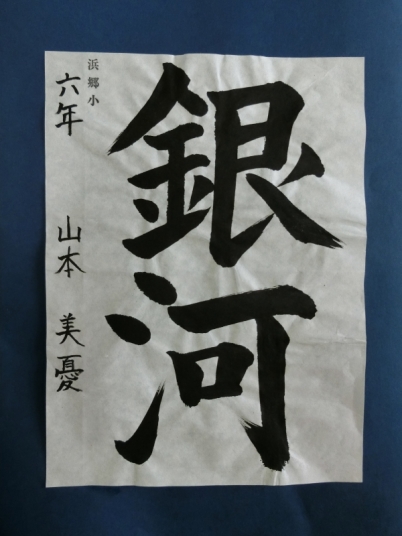 銀河
浜郷小
六年 山本 美憂